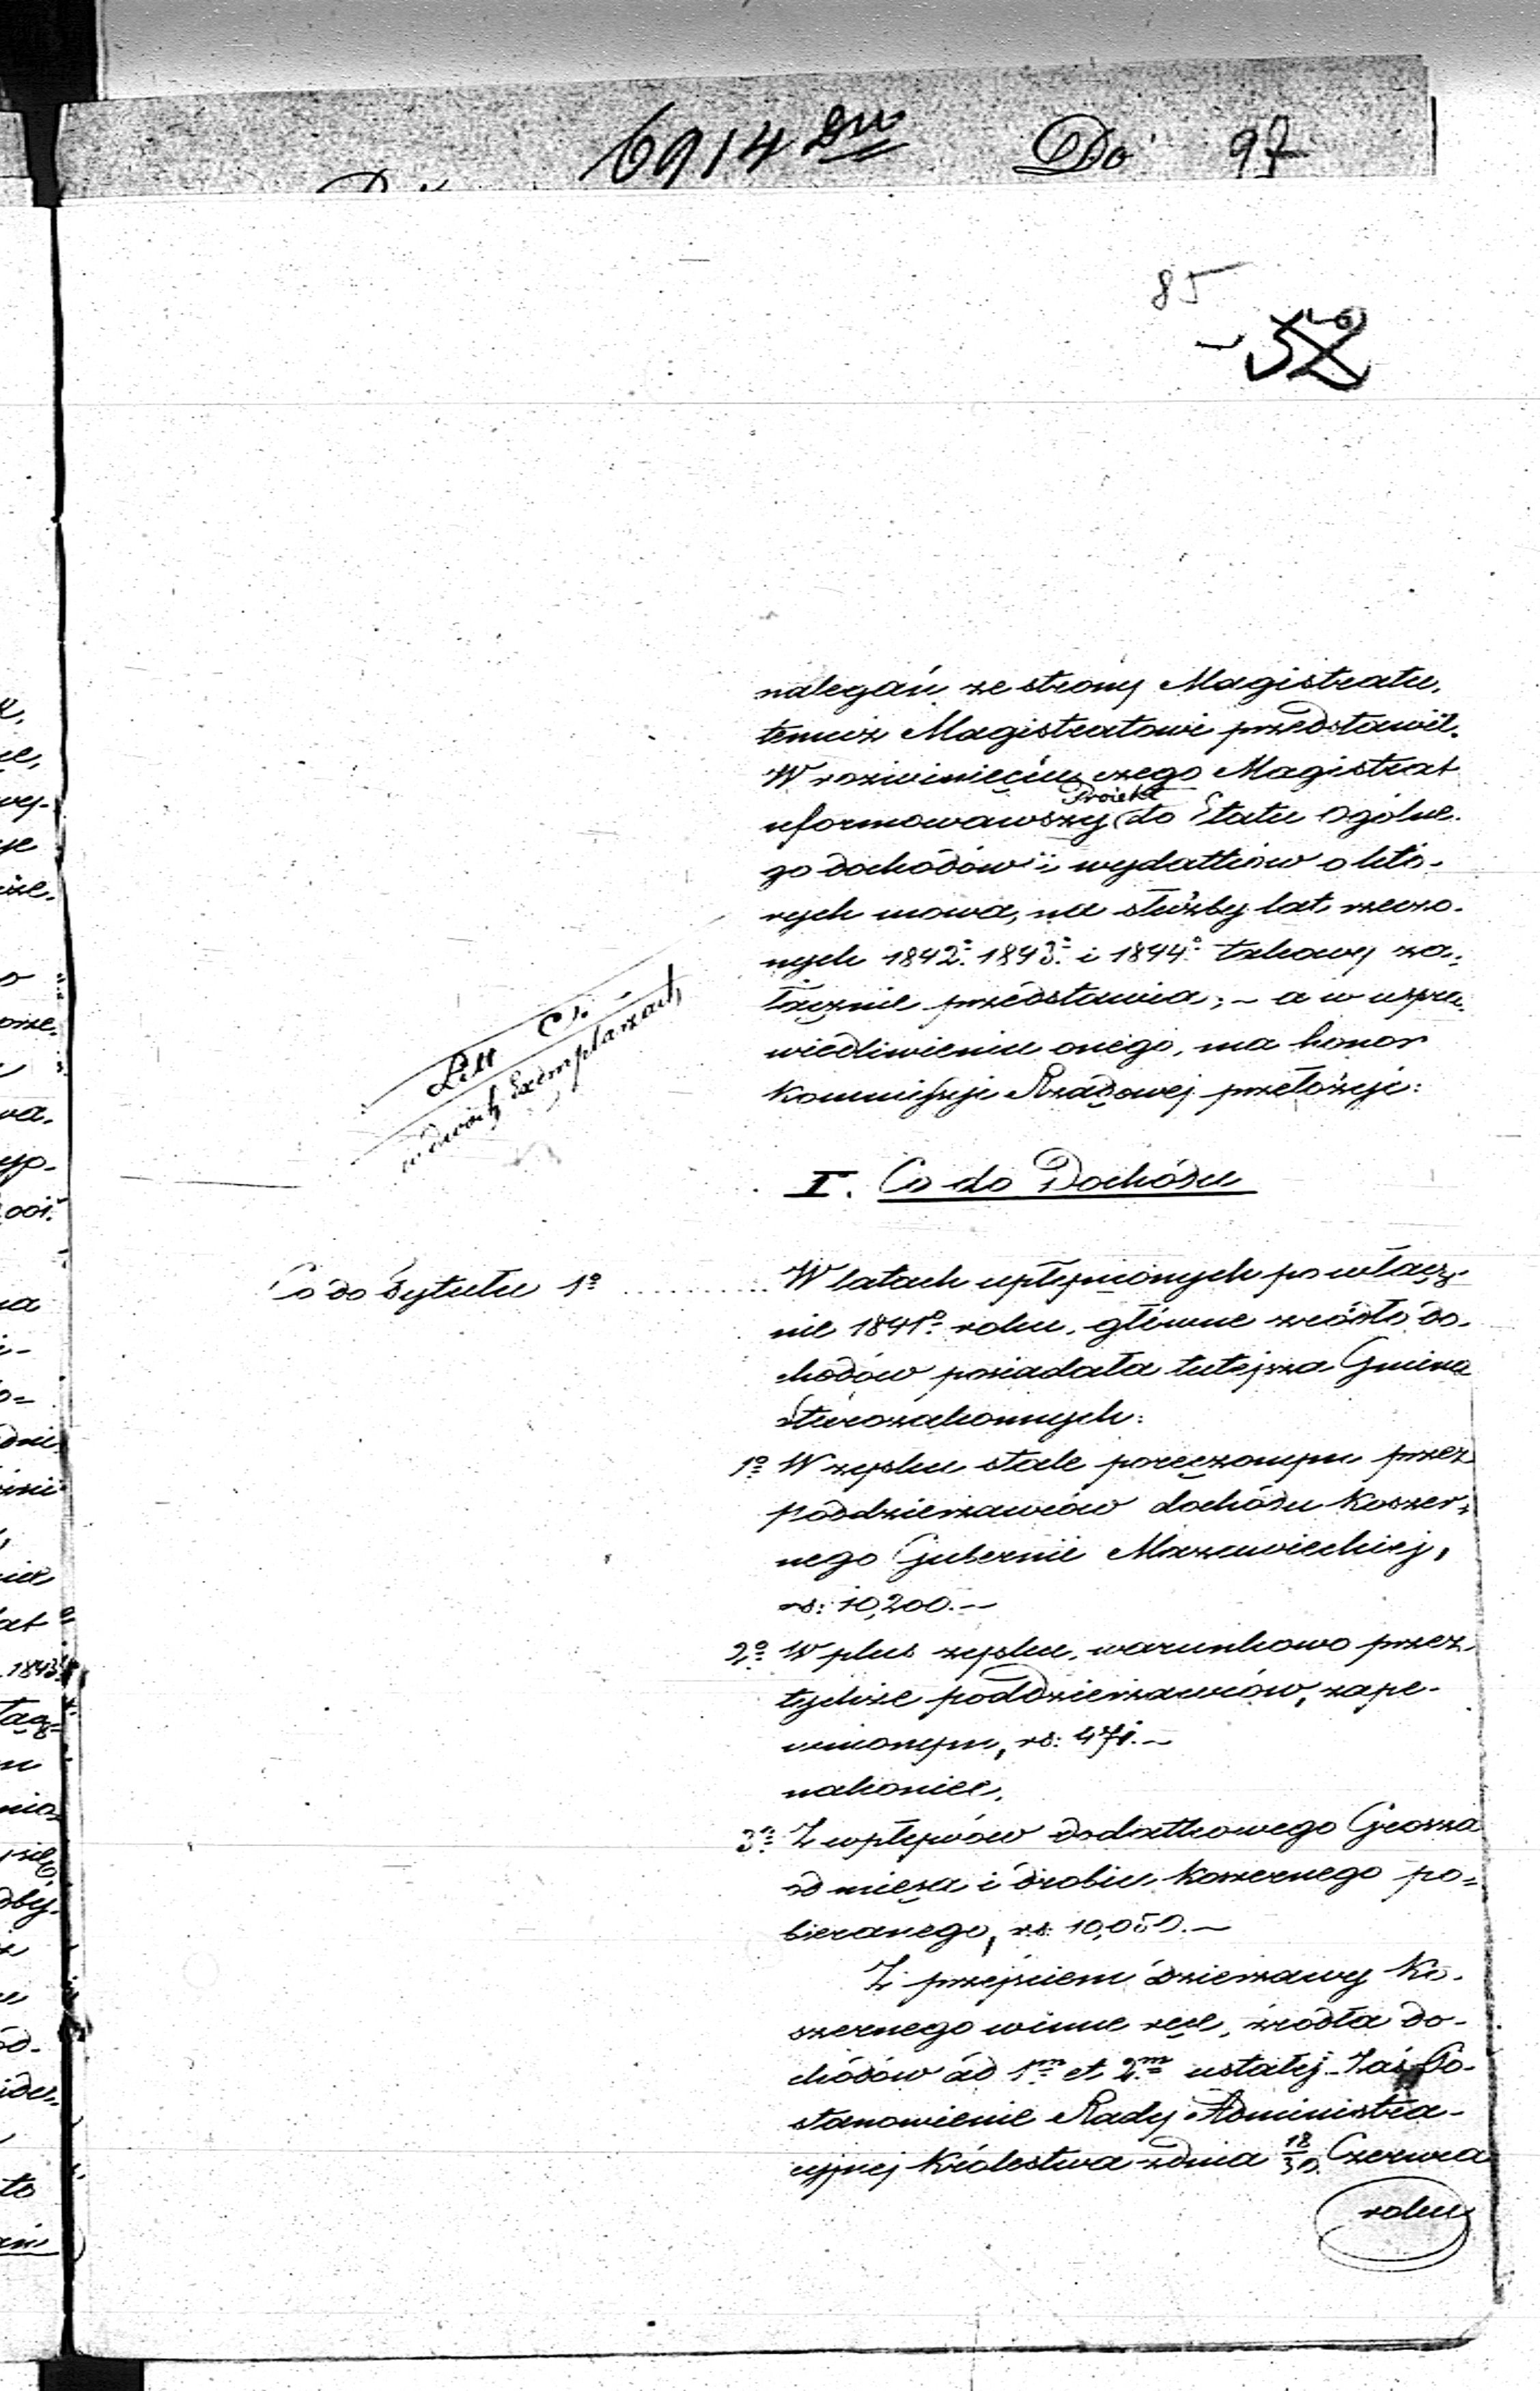 6914 Do 97
85
nalegań ze strony Magistratu,
temuż Magistratowi przedstawił.
W rozwinięciu czego Magistrat
Projekt
uformowawszy do Etatu Ogólne-
go dochodów i wydatków o któ-
rych mowa, na służby lat rzeczo-
nych 1842º 1843º i 1844º takowy za-
łącznie przedstawia; – a w uspra-
wiedliwieniu onego, ma honor
Kommissyi Rządowej przełożyć:
Litt C.
w dwóch Exemplarzach
I. Co do Dochódu
Co do tytułu 1º
W latach upłynionych po włącz-
nie 1841º roku, główne źródło do-
chodów posiadała tutejsza Gmina
Starozakonnych:
1º W zysku stale poręczonym przez
poddzierżawców dochódu Koszer-
nego Gubernii Mazowieckiej,
rs: 10,200.–
2º W plus zysku, warunkowo przez
tychże poddzierżawców, zape-
wnionym, rs: 471.–
nakoniec,
3º Z wpływów dodatkowego Grosza
od mięsa i drobiu Koszernego po-
bieranego, rs: 10,050.–
Z przejściem dzierżawy Ko-
szernego w inne ręce, źródła do-
chódów ad 1m et 2m ustały. Zaś Po-
stanowienie Rady Administra-
cyjnej Królestwa z dnia 18/30 Czerwca
roku